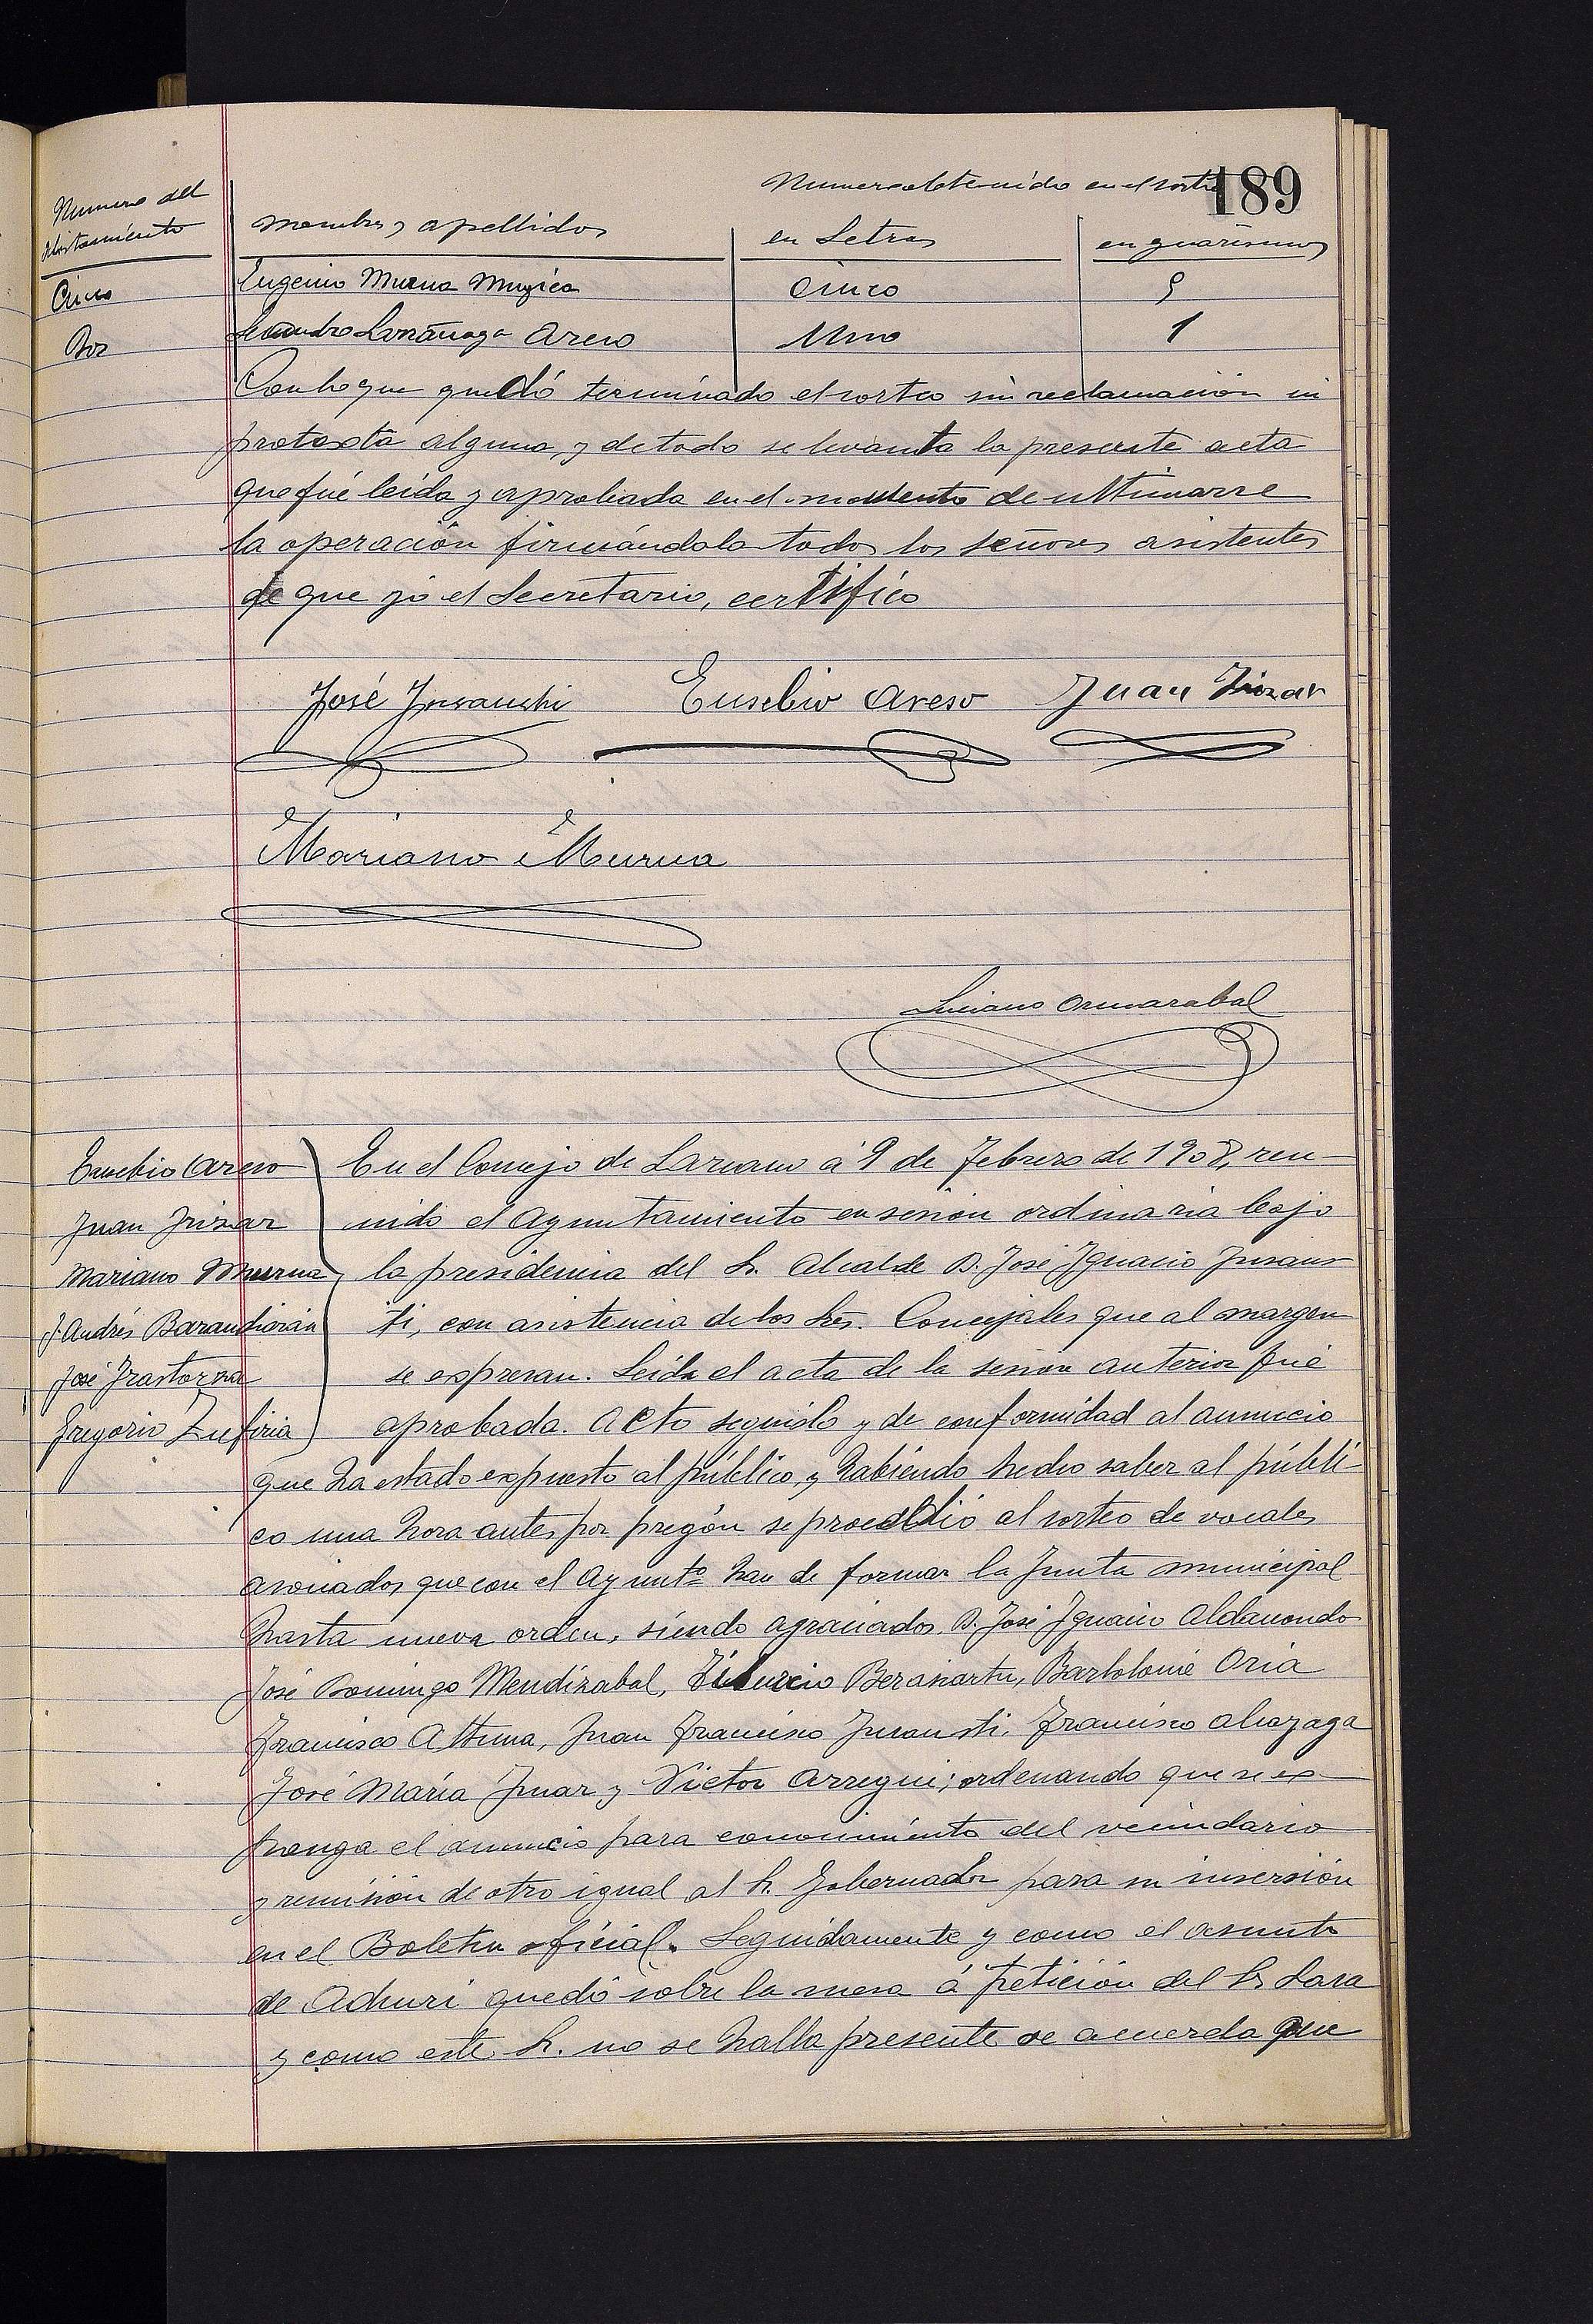 189
Numero obtenido en el sorteo
Numero del
alistamiento
nombres y apellidos
en Letras
en guarismos
Cinco Eugenio Murua Mugica Cinco 5
Dos Leandro Lorzanaga Areso Uno 1
Con lo que quedó terminado el sorteo sin reclamación ni
protexta alguna, y de todo se levanta la presente acta
que fué leida y aprobada en el momento de ultimarse
la operación firmándola todos los señores asistentes
de que yo el Secretario, certifico
José Insausti Eusebio Areso Juan Irizar
Mariano Murua
Luciano Ormazabal
Eusebio Areso
Juan Irizar
Mariano Murua
J. Andrés Barandiarán
José Irastorza
Gregorio Zufiria
En el Concejo de Lazcano á 9 de Febrero de 1908, reu-
nido el Ayuntamiento en sesión ordinaria bajo
la presidencia del Sr. Alcalde D. José Ignacio Insaus-
ti, con asistencia de los Sres. Concejales que al margen
se expresan. Leida el acta de la sesion anterior fué
aprobada. Acto seguido y de conformidad al anuncio
que ha estado expuesto al público, y habiendo hecho saber al públi-
co una hora antes por pregón se procedió al sorteo de vocales
asociados que con el Ayuntº han de formar la Junta municipal
hasta nueva orden, siendo agraciados D. José Ignacio Aldanondo
José Domingo Mendizabal, Tiburcio Berasiartu, Bartolomé Oria
Francisco Altuna, Juan Francisco Insausti, Francisco Alcayaga
José María Inuar y Victor Arregui; ordenando que se ex-
ponga el anuncio para conocimiento del vecindario
y remisión de otro igual al Sr. Gobernador para su inserción
en el Boletin oficial. Seguidamente y como el asunto
de Achuri quedó sobre la mesa á petición del Sr Lasa
y como este Sr. no se halla presente se acuerda que